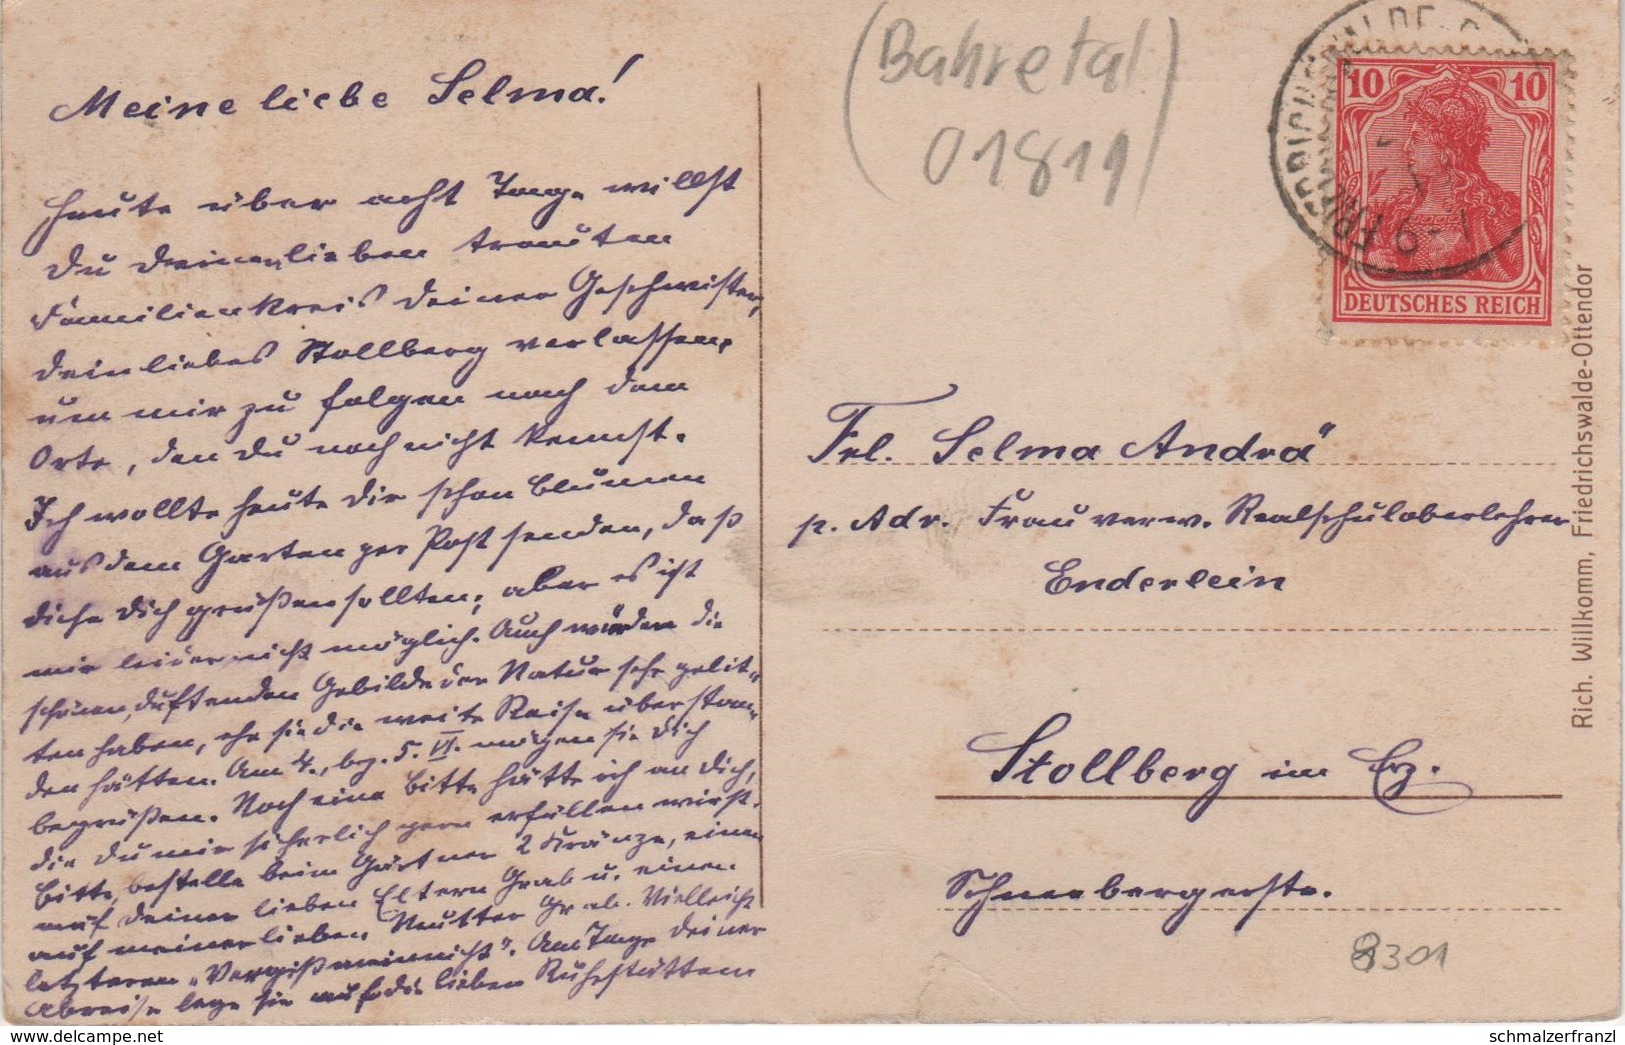 Meine liebe Selma!
Heute über acht Tage willst
Du Deinen lieben trauten
Familienkreis Deiner Geschwister,
Dein liebes Stollberg verlassen,
um mir zu folgen nach dem
Orte, den Du noch nicht kennst.
Ich wollte heute Dir schon Blumen
aus dem Garten per Post senden, daß
diese Dich grüßen sollten; aber es ist
mir leider nicht möglich. Auch würden die
schönen, duftenden Gebilde der Natur sehr gelit-
ten haben, ehe sie die weite Reise überstan-
den hätten. Am 4., bz. 5. VI. mögen sie Dich
begrüßen. Noch eine Bitte hätte ich an Dich,
die Du mir sicherlich gern erfüllen wirst.
Bitte, bestelle beim Gärtner 2 Kränze, einen
auf Deiner lieben Eltern Grab u. einen
auf meiner lieben Mutter Grab. Vielleicht
letzteren „Vergißmeinnicht". Am Tage Deiner
Abreise lege sie auf die lieben Ruhestätten
(Bahretal)
01819
10 10
DEUTSCHES REICH
Frl. Selma Andrä
p. Adr. Frau verw. Realschuloberlehrer
Enderlein
Stollberg im Erz.
Schneebergerstr.
8301
Rich. Willkomm, Friedrichswalde-Ottendor
www.delcampe.net
schmalzerfranzl